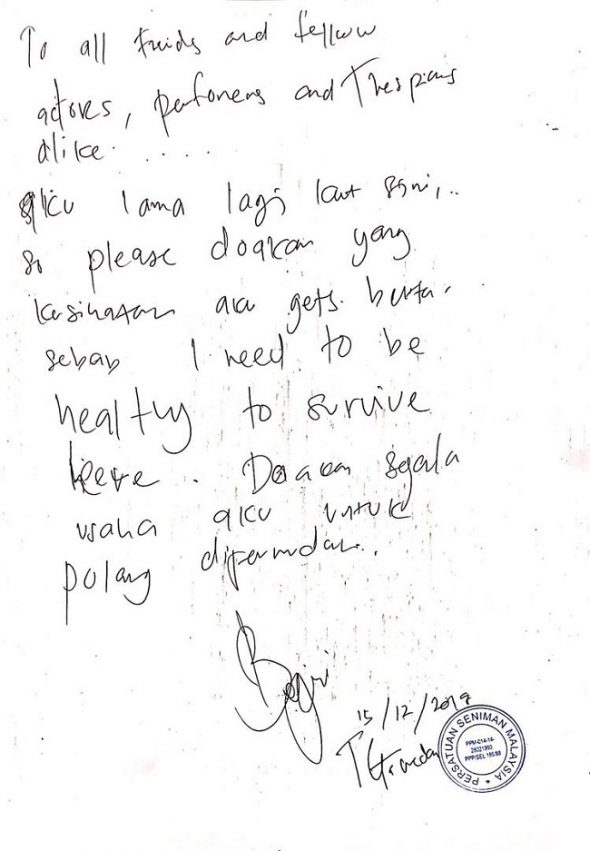 To all friends and fellow
actores, Performers and Thespians
alike.....
aku lama lagi kat sini,..
so please doakan yang
kesihatan aku gets better.
sebab I need to be
healthy to survive
here. Doakan segala
usaha aku untuk
pulang dipermudah..
15/12/2019
PERSATUAN SENIMAN MALAYSIA